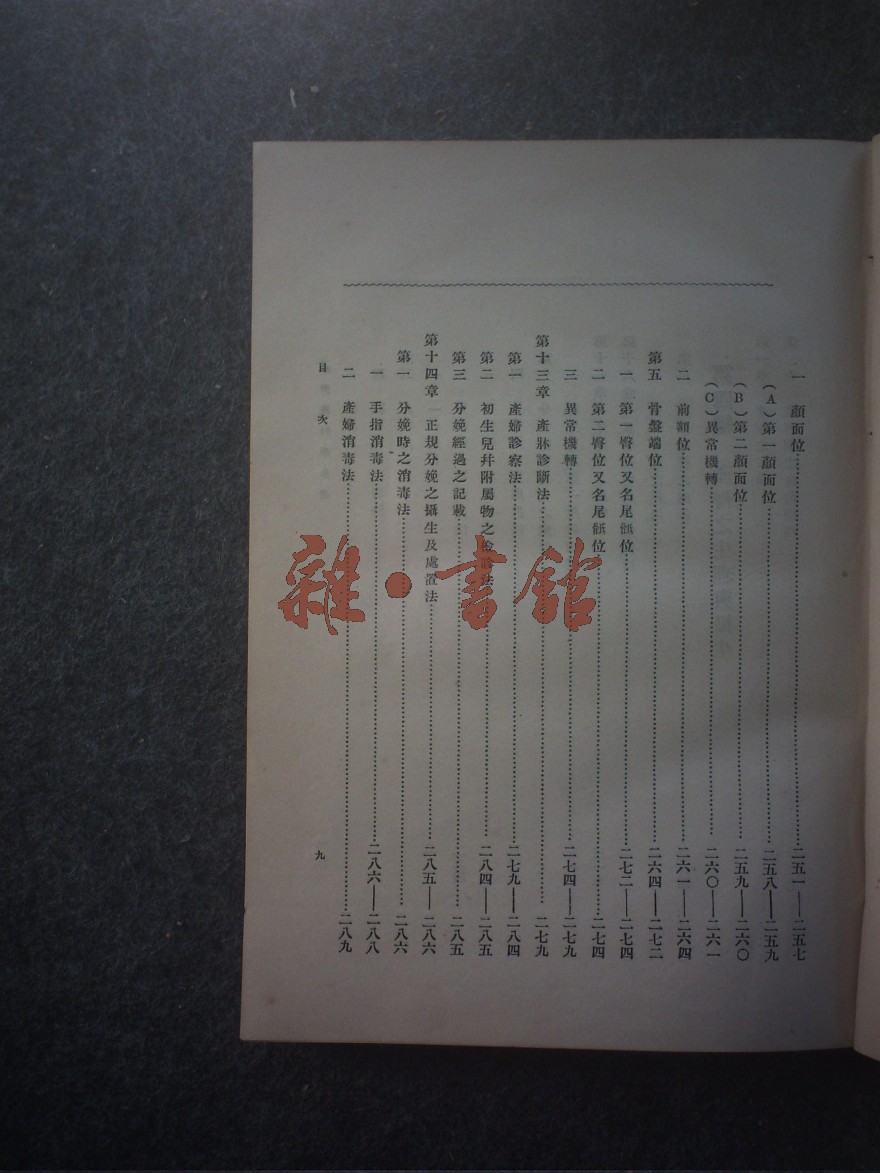 一　顏面位……二五一——二五七
（A）第一顏面位……二五八——二五九
（B）第二顏面位……二五九——二六〇
（C）異常機轉……二六〇——二六一
二　前額位……二六一——二六四
第五　骨盤端位……二六四——二七二
一　第一臀位又名尾骶位……二七二——二七四
二　第二臀位又名尾骶位……二七四
三　異常機轉……二七四——二七九
第十三章　產牀診斷法……二七九
第一　產婦診察法……二七九——二八四
第二　初生兒幷附屬物之檢診法……二八四——二八五
第三　分娩經過之記載……二八五
第十四章　正規分娩之攝生及處置法……二八五——二八六
第一　分娩時之消毒法……二八六
一　手指消毒法……二八六——二八八
二　產婦消毒法……二八九
目次
九
雜·書館